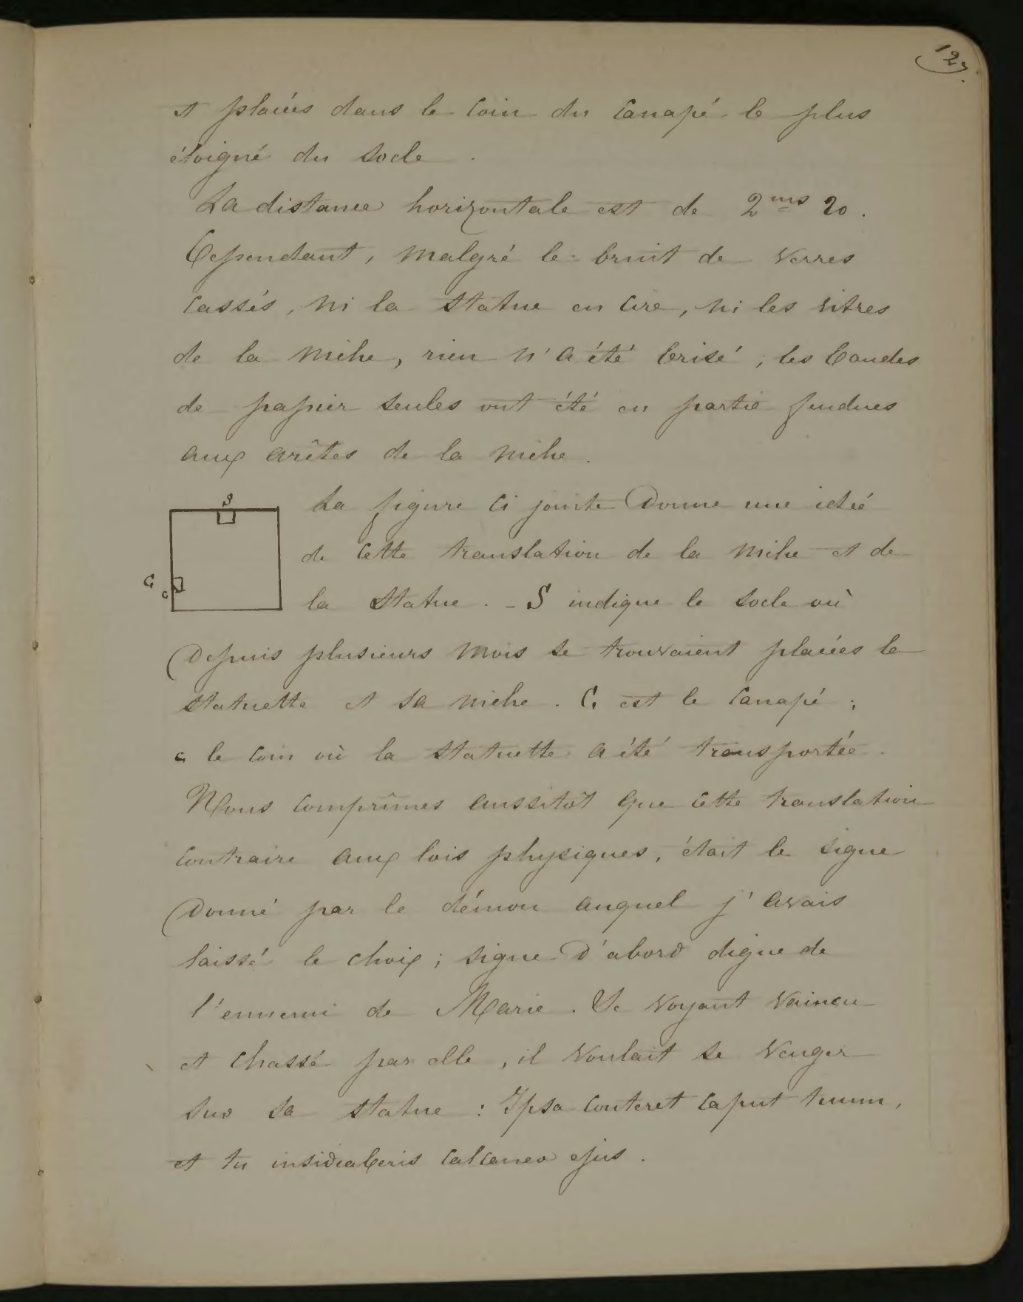 127.
et placées dans le coin du canapé le plus
éloigné du socle.
La distance horizontale est de 2ms 20.
Cependant, malgré le bruit de verres
cassés, ni la statue en cire, ni les vitres
de la niche, rien n'a été brisé ; les bandes
de papier seules ont été en partie fendues
aux arêtes de la niche.
S
La figure ci jointe donne une idée
de cette translation de la niche et de
C c
la statue. - S indique le socle où
depuis plusieurs mois se trouvaient placées la
statuette et sa niche. C est le canapé ;
c le coin où la statuette a été transportée.
Nous comprîmes aussitôt que cette translation
contraire aux lois physiques, était le signe
donné par le démon auquel j'avais
laissé le choix ; signe d'abord digne de
l'ennemi de Marie. Se voyant vaincu
et chassé par elle, il voulait se venger
sur sa statue : Ipsa conteret caput tuum,
et tu insidiaberis calcaneo ejus.